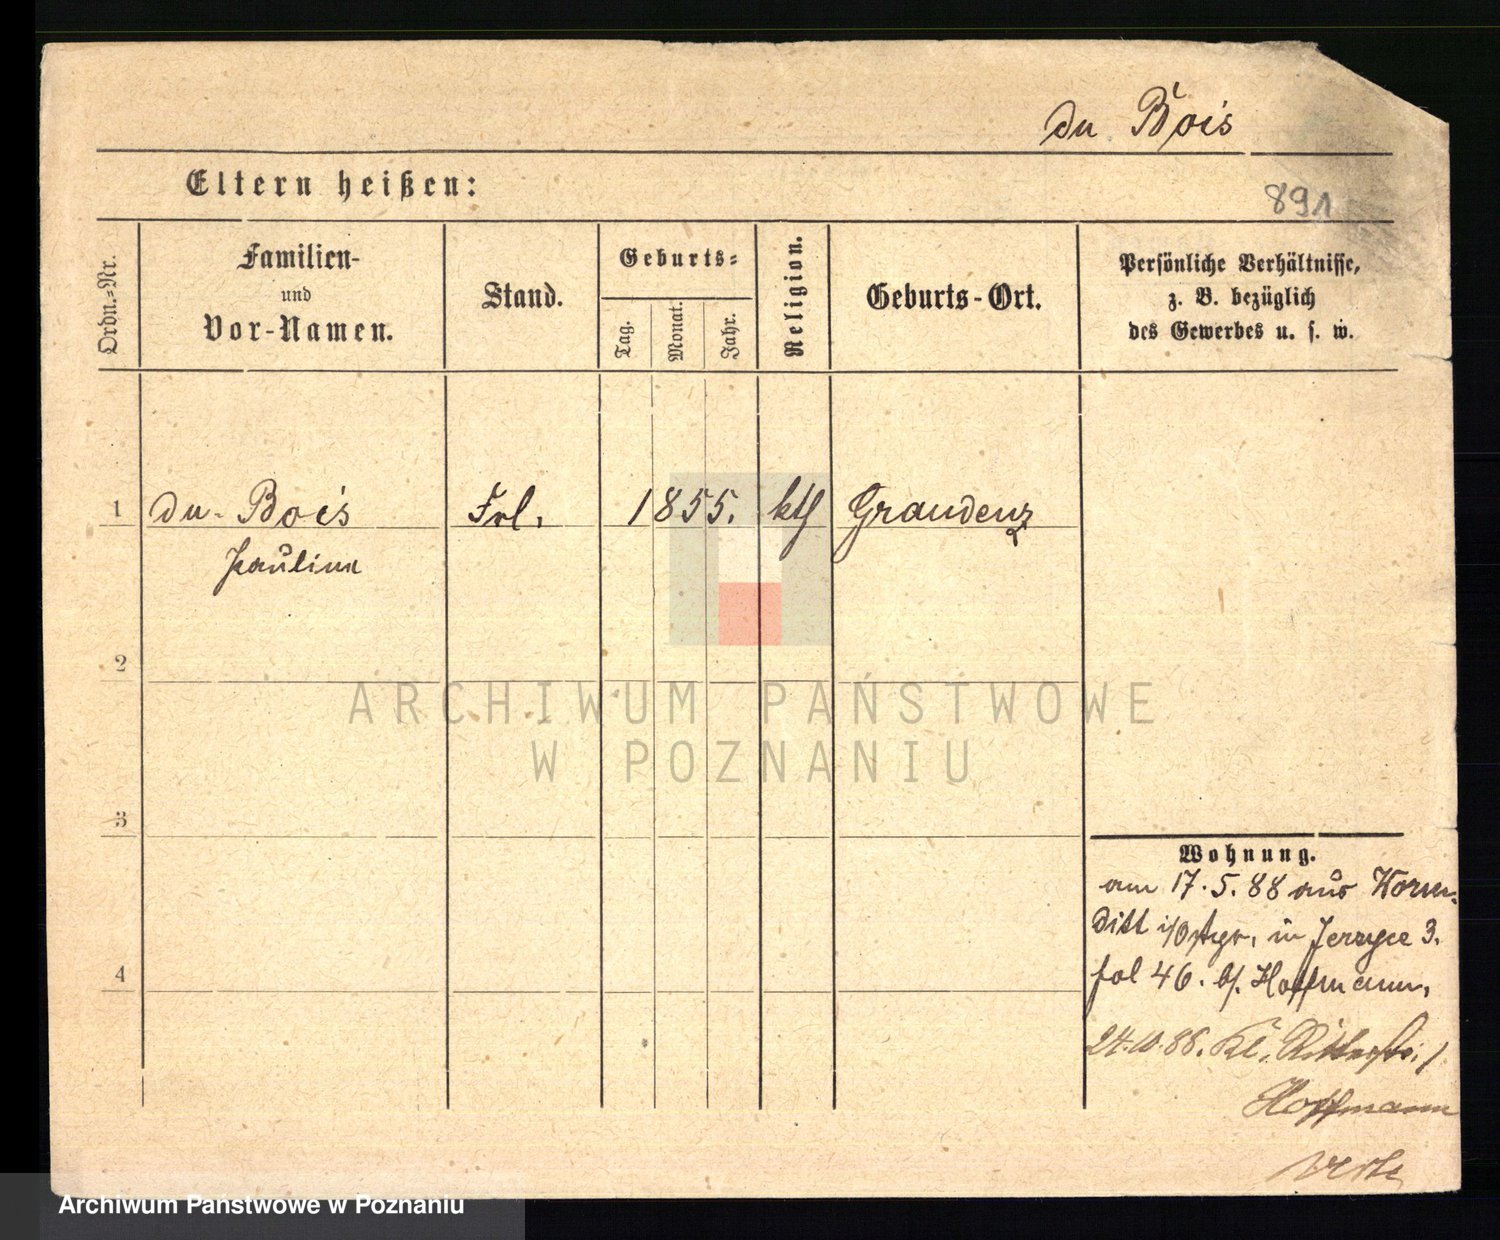 du Bois
Eltern heißen:
891
Ordn.-Nr.
Familien-
und
Vor-Namen.
Stand.
Geburts-
Tag.
Monat.
Jahr.
Religion.
Geburts-Ort.
Persönliche Verhältnisse,
z. B. bezüglich
des Gewerbes u. s. w.
1
du-Bois
Frl.
1855.
kth
Graudenz
Paulina
2
ARCHIWUM PAŃSTWOWE
W POZNANIU
3
Wohnung.
am 17.5.88 aus Worm-
ditt i/Ostpr. in Jerzyce 3.
4
fol 46. b/. Hoffmann,
24.10.88. Kl. Ritterstr. 1
Hoffmann
Archiwum Państwowe w Poznaniu